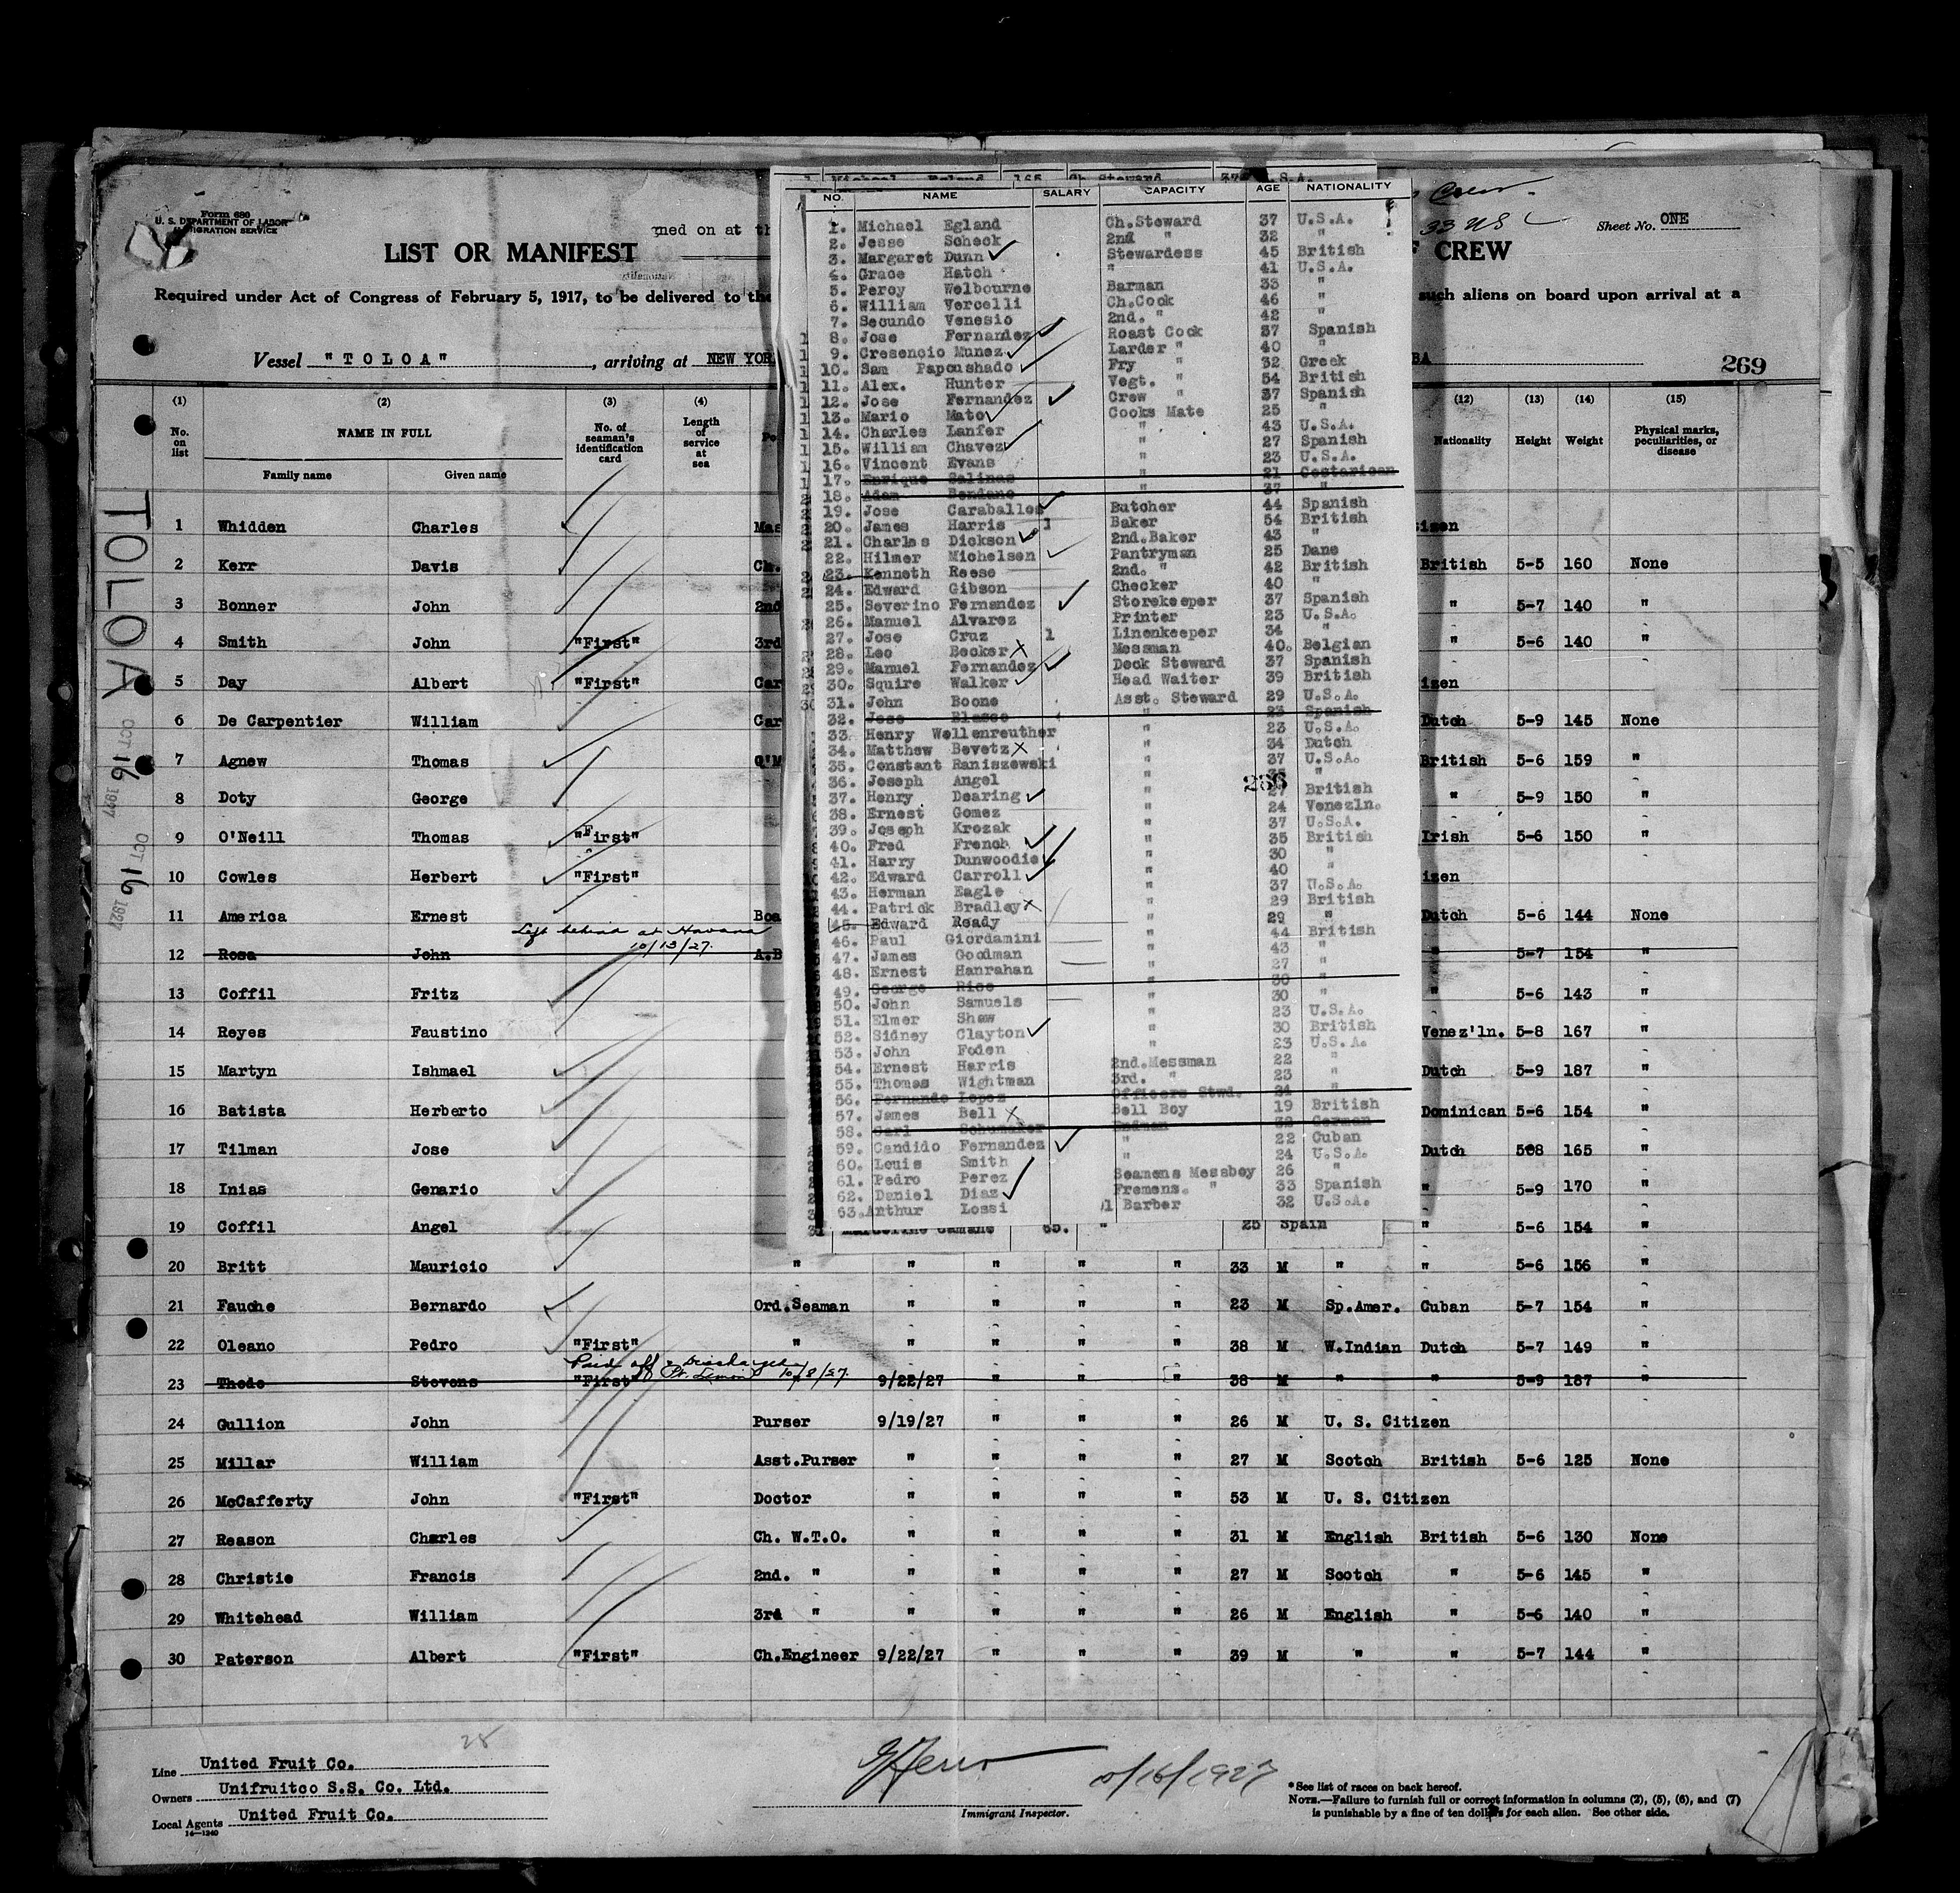 Form 680
U. S. DEPARTMENT OF LABOR
IMMIGRATION SERVICE
LIST OR MANIFEST
CREW
33 US
Sheet No. ONE
Required under Act of Congress of February 5, 1917, to be delivered to the
such aliens on board upon arrival at a
Vessel "TOLOA", arriving at NEW YOR
269
TOLOA
OCT 16 1927
OCT 16 1927
(1) (2) (3) (4) (12) (13) (14) (15)
No. on list NAME IN FULL No. of seaman's identification card Length of service at sea Nationality Height Weight Physical marks, peculiarities, or disease
Family name Given name
1 Whidden Charles Mas
2 Kerr Davis Ch. British 5-5 160 None
3 Bonner John 2nd " 5-7 140 "
4 Smith John "First" 3rd " 5-6 140 "
5 Day Albert "First" Car izen
6 De Carpentier William Car Dutch 5-9 145 None
7 Agnew Thomas Q'M British 5-6 159 "
8 Doty George " 5-9 150 "
9 O'Neill Thomas "First" Irish 5-6 150 "
10 Cowles Herbert "First" izen
11 America Ernest Boa Dutch 5-6 144 None
Left behind at Havana
10/13/27.
12 Rosa John A.B " 5-7 154 "
13 Coffil Fritz " 5-6 143 "
14 Reyes Faustino Venez'ln. 5-8 167 "
15 Martyn Ishmael Dutch 5-9 187 "
16 Batista Herberto Dominican 5-6 154 "
17 Tilman Jose Dutch 508 165 "
18 Inias Genario " 5-9 170 "
19 Coffil Angel " 5-6 154 "
20 Britt Mauricio " " " " " 33 M " " 5-6 156 "
21 Fauche Bernardo Ord.Seaman " " " " 23 M Sp.Amer. Cuban 5-7 154 "
22 Oleano Pedro "First" " " " " " 38 M W.Indian Dutch 5-7 149 "
Paid off & Discharged
Pt. Limon 10/8/27.
23 Thode Stevens "First" 9/22/27 " " " 38 M " " 5-9 187 "
24 Gullion John Purser 9/19/27 " " " 26 M U. S. Citizen
25 Millar William Asst.Purser " " " " 27 M Scotch British 5-6 125 None
26 McCafferty John "First" Doctor " " " " 53 M U. S. Citizen
27 Reason Charles Ch. W.T.O. " " " " 31 M English British 5-6 130 None
28 Christie Francis 2nd. " " " " " 27 M Scotch " 5-6 145 "
29 Whitehead William 3rd " " " " " 26 M English " 5-6 140 "
30 Paterson Albert "First" Ch.Engineer 9/22/27 " " " 39 M " " 5-7 144 "
NO. NAME SALARY CAPACITY AGE NATIONALITY
1. Michael Egland Ch.Steward 37 U.S.A.
2. Jesse Scheck 2nd " 32 "
3. Margaret Dunn Stewardess 45 British
4. Grace Hatch " 41 U.S.A.
5. Percy Welbourne Barman 33 "
6. William Vercelli Ch.Cook 46 "
7. Secundo Venesio 2nd. " 42 "
8. Jose Fernandez Roast Cook 37 Spanish
9. Cresencio Munez Larder " 40 "
10. Sam Papoushado Fry " 32 Greek
11. Alex. Hunter Vegt. " 54 British
12. Jose Fernandez Crew " 37 Spanish
13. Mario Mato Cooks Mate 25 "
14. Charles Lanfer " 43 U.S.A.
15. William Chavez " 27 Spanish
16. Vincent Evans " 23 U.S.A.
17. Enrique Salinas " 21 Costarican
18. Adam Bendano " 37 "
19. Jose Caraballos Butcher 44 Spanish
20. James Harris 1 Baker 54 British
21. Charles Dickson 2nd.Baker 43 "
22. Hilmer Michelsen Pantryman 25 Dane
23. Kenneth Reese 2nd. " 42 British
24. Edward Gibson Checker 40 "
25. Severino Fernandez Storekeeper 37 Spanish
26. Manuel Alvarez Printer 23 U.S.A.
27. Jose Cruz 1 Linenkeeper 34 "
28. Leo Becker Messman 40. Belgian
29. Manuel Fernandez Deck Steward 37 Spanish
30. Squire Walker Head Waiter 39 British
31. John Boone Asst. Steward 29 U.S.A.
32. Jose Blasco " 23 Spanish
33. Henry Wellenreuther " 23 U.S.A.
34. Matthew Bevetz " 34 Dutch
35. Constant Raniszewski " 37 U.S.A.
36. Joseph Angel " "
37. Henry Dearing " 27 British
38. Ernest Gomez " 24 Venezln.
39. Joseph Krozak " 37 U.S.A.
40. Fred French " 35 British
41. Harry Dunwoodie " 30 "
42. Edward Carroll " 40 "
43. Herman Eagle " 37 U.S.A.
44. Patrick Bradley " 29 British
45. Edward Ready " 29 "
46. Paul Giordamini " 44 British
47. James Goodman " 43 "
48. Ernest Hanrahan " 27 "
49. George Rice " 30 "
50. John Samuels " 30 "
51. Elmer Shaw " 23 U.S.A.
52. Sidney Clayton " 30 British
53. John Foden " 23 U.S.A.
54. Ernest Harris 2nd.Messman 22 "
55. Thomas Wightman 3rd. " 23 "
56. Fernando Lopez Officers Stwd. 24 "
57. James Bell Bell Boy 19 British
58. Carl Schumaker Endman 32 German
59. Candido Fernandez " 22 Cuban
60. Louis Smith " 24 U.S.A.
61. Pedro Perez Seamens Messboy 26 "
62. Daniel Diaz Fremens. " 33 Spanish
63. Arthur Lossi 1 Barber 32 U.S.A.
65. " 25 Spain
28
Line United Fruit Co.
Owners Unifruitco S.S. Co. Ltd.
Local Agents United Fruit Co.
14—1240
10/16/1927
Immigrant Inspector.
*See list of races on back hereof.
NOTE.—Failure to furnish full or correct information in columns (2), (5), (6), and (7)
is punishable by a fine of ten dollars for each alien. See other side.